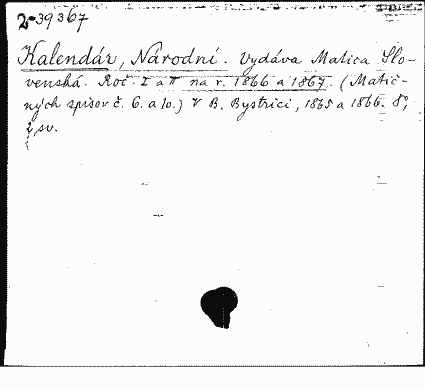 2-39367
Kalendár, Národní. Vydáva Matica Slo-
venská. Roč. I a II na r. 1866 a 1867. (Matič-
ných spisov č. 6. a 10.) V B. Bystrici, 1865 a 1866. 8°,
2 sv.